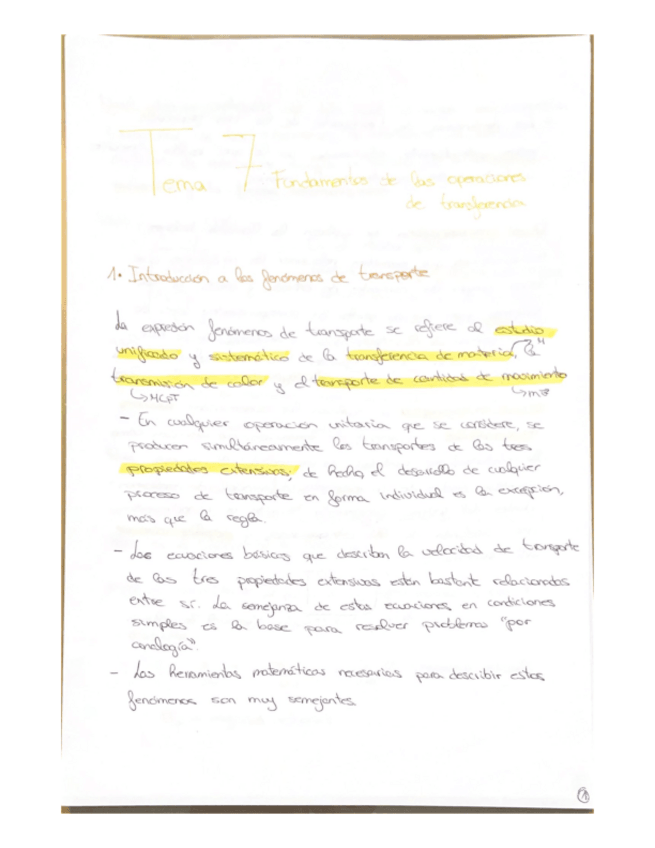 Tema 7 Fundamentos de las operaciones
de transferencia
1. Introducción a los fenómenos de transporte
La expresión fenómenos de transporte se refiere al estudio
unificado y sistemático de la transferencia de materia, la
transmisión de calor y el transporte de cantidad de movimiento
- En cualquier operación unitaria que se considere, se
producen simultáneamente los transportes de las tres
propiedades extensivas; de hecho, el desarrollo de cualquier
proceso de transporte en forma individual es la excepción,
más que la regla.
- Las ecuaciones básicas que describen la velocidad de transporte
de las tres propiedades extensivas están bastante relacionadas
entre sí. La semejanza de estas ecuaciones en condiciones
simples es la base para resolver problemas "por
analogía".
- Las herramientas matemáticas necesarias para describir estos
fenómenos son muy semejantes
1